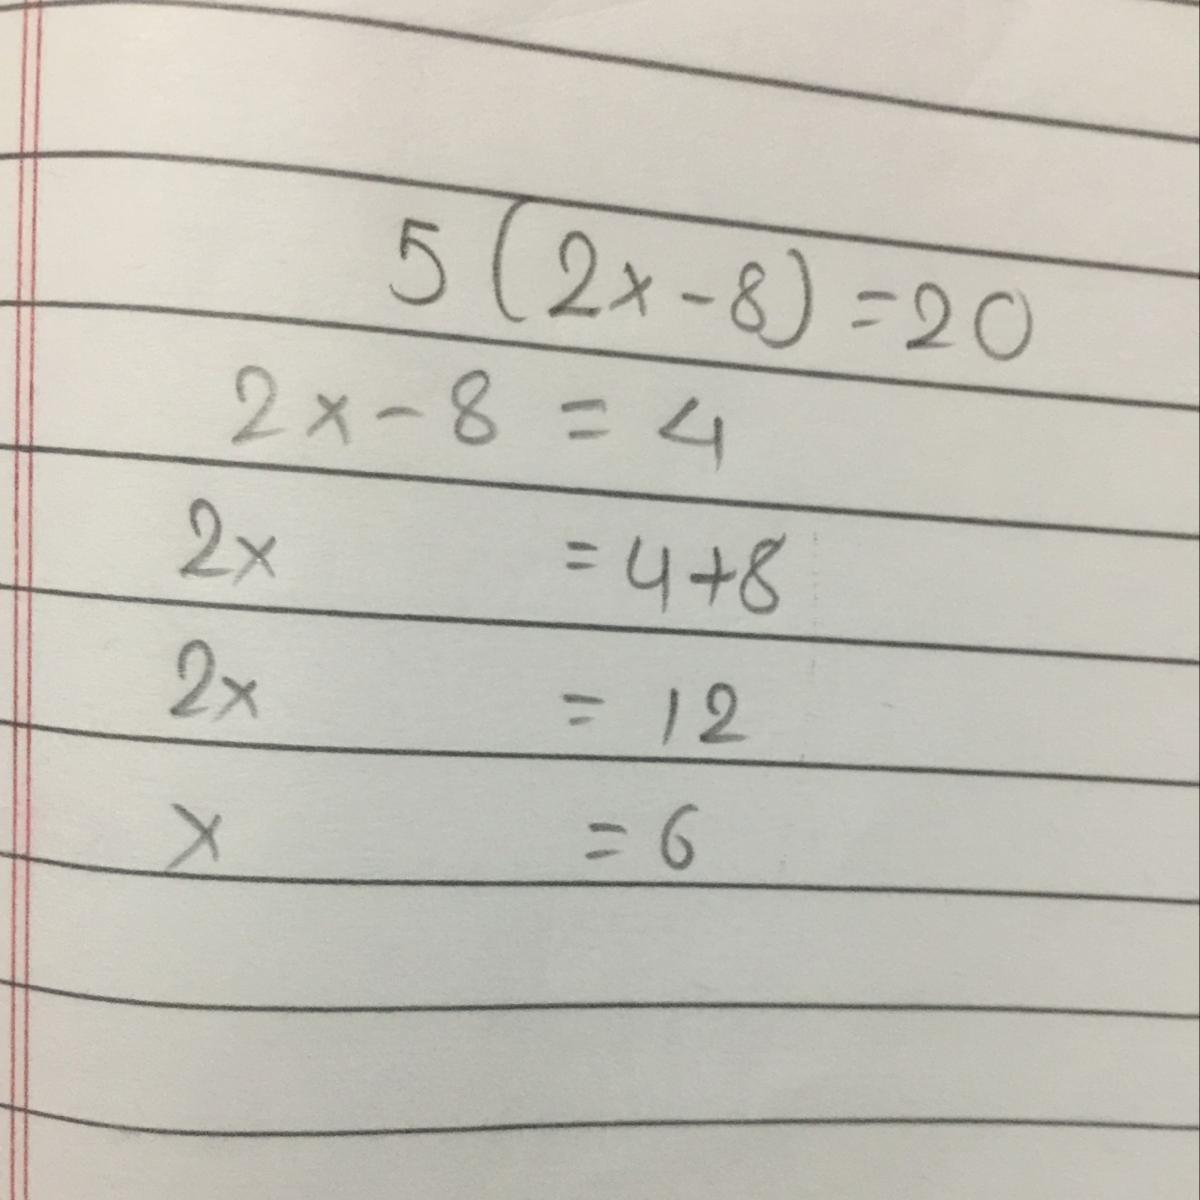 5(2x-8)=20
2x-8 = 4
2x = 4+8
2x = 12
x = 6